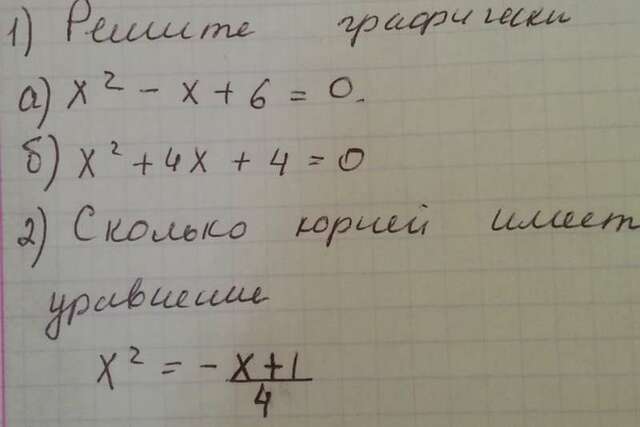 1) Решите графически
а) x² - x + 6 = 0.
б) x² + 4x + 4 = 0
2) Сколько корней имеет
уравнение
x² = - (x+1)/4